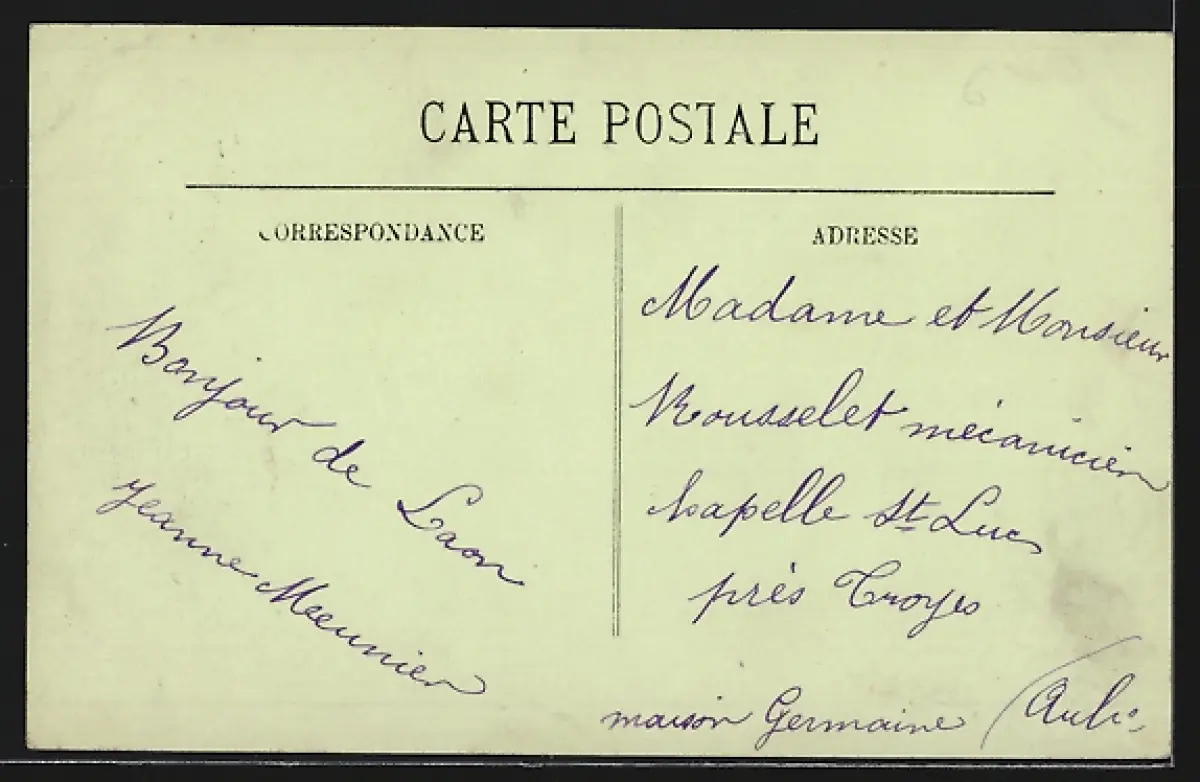 CARTE POSTALE
CORRESPONDANCE
Bonjour de Laon
Jeanne Meunier
ADRESSE
Madame et Monsieur
Rousselet mécanicien
Chapelle St Luc
près Troyes
maison Germaine (Aube